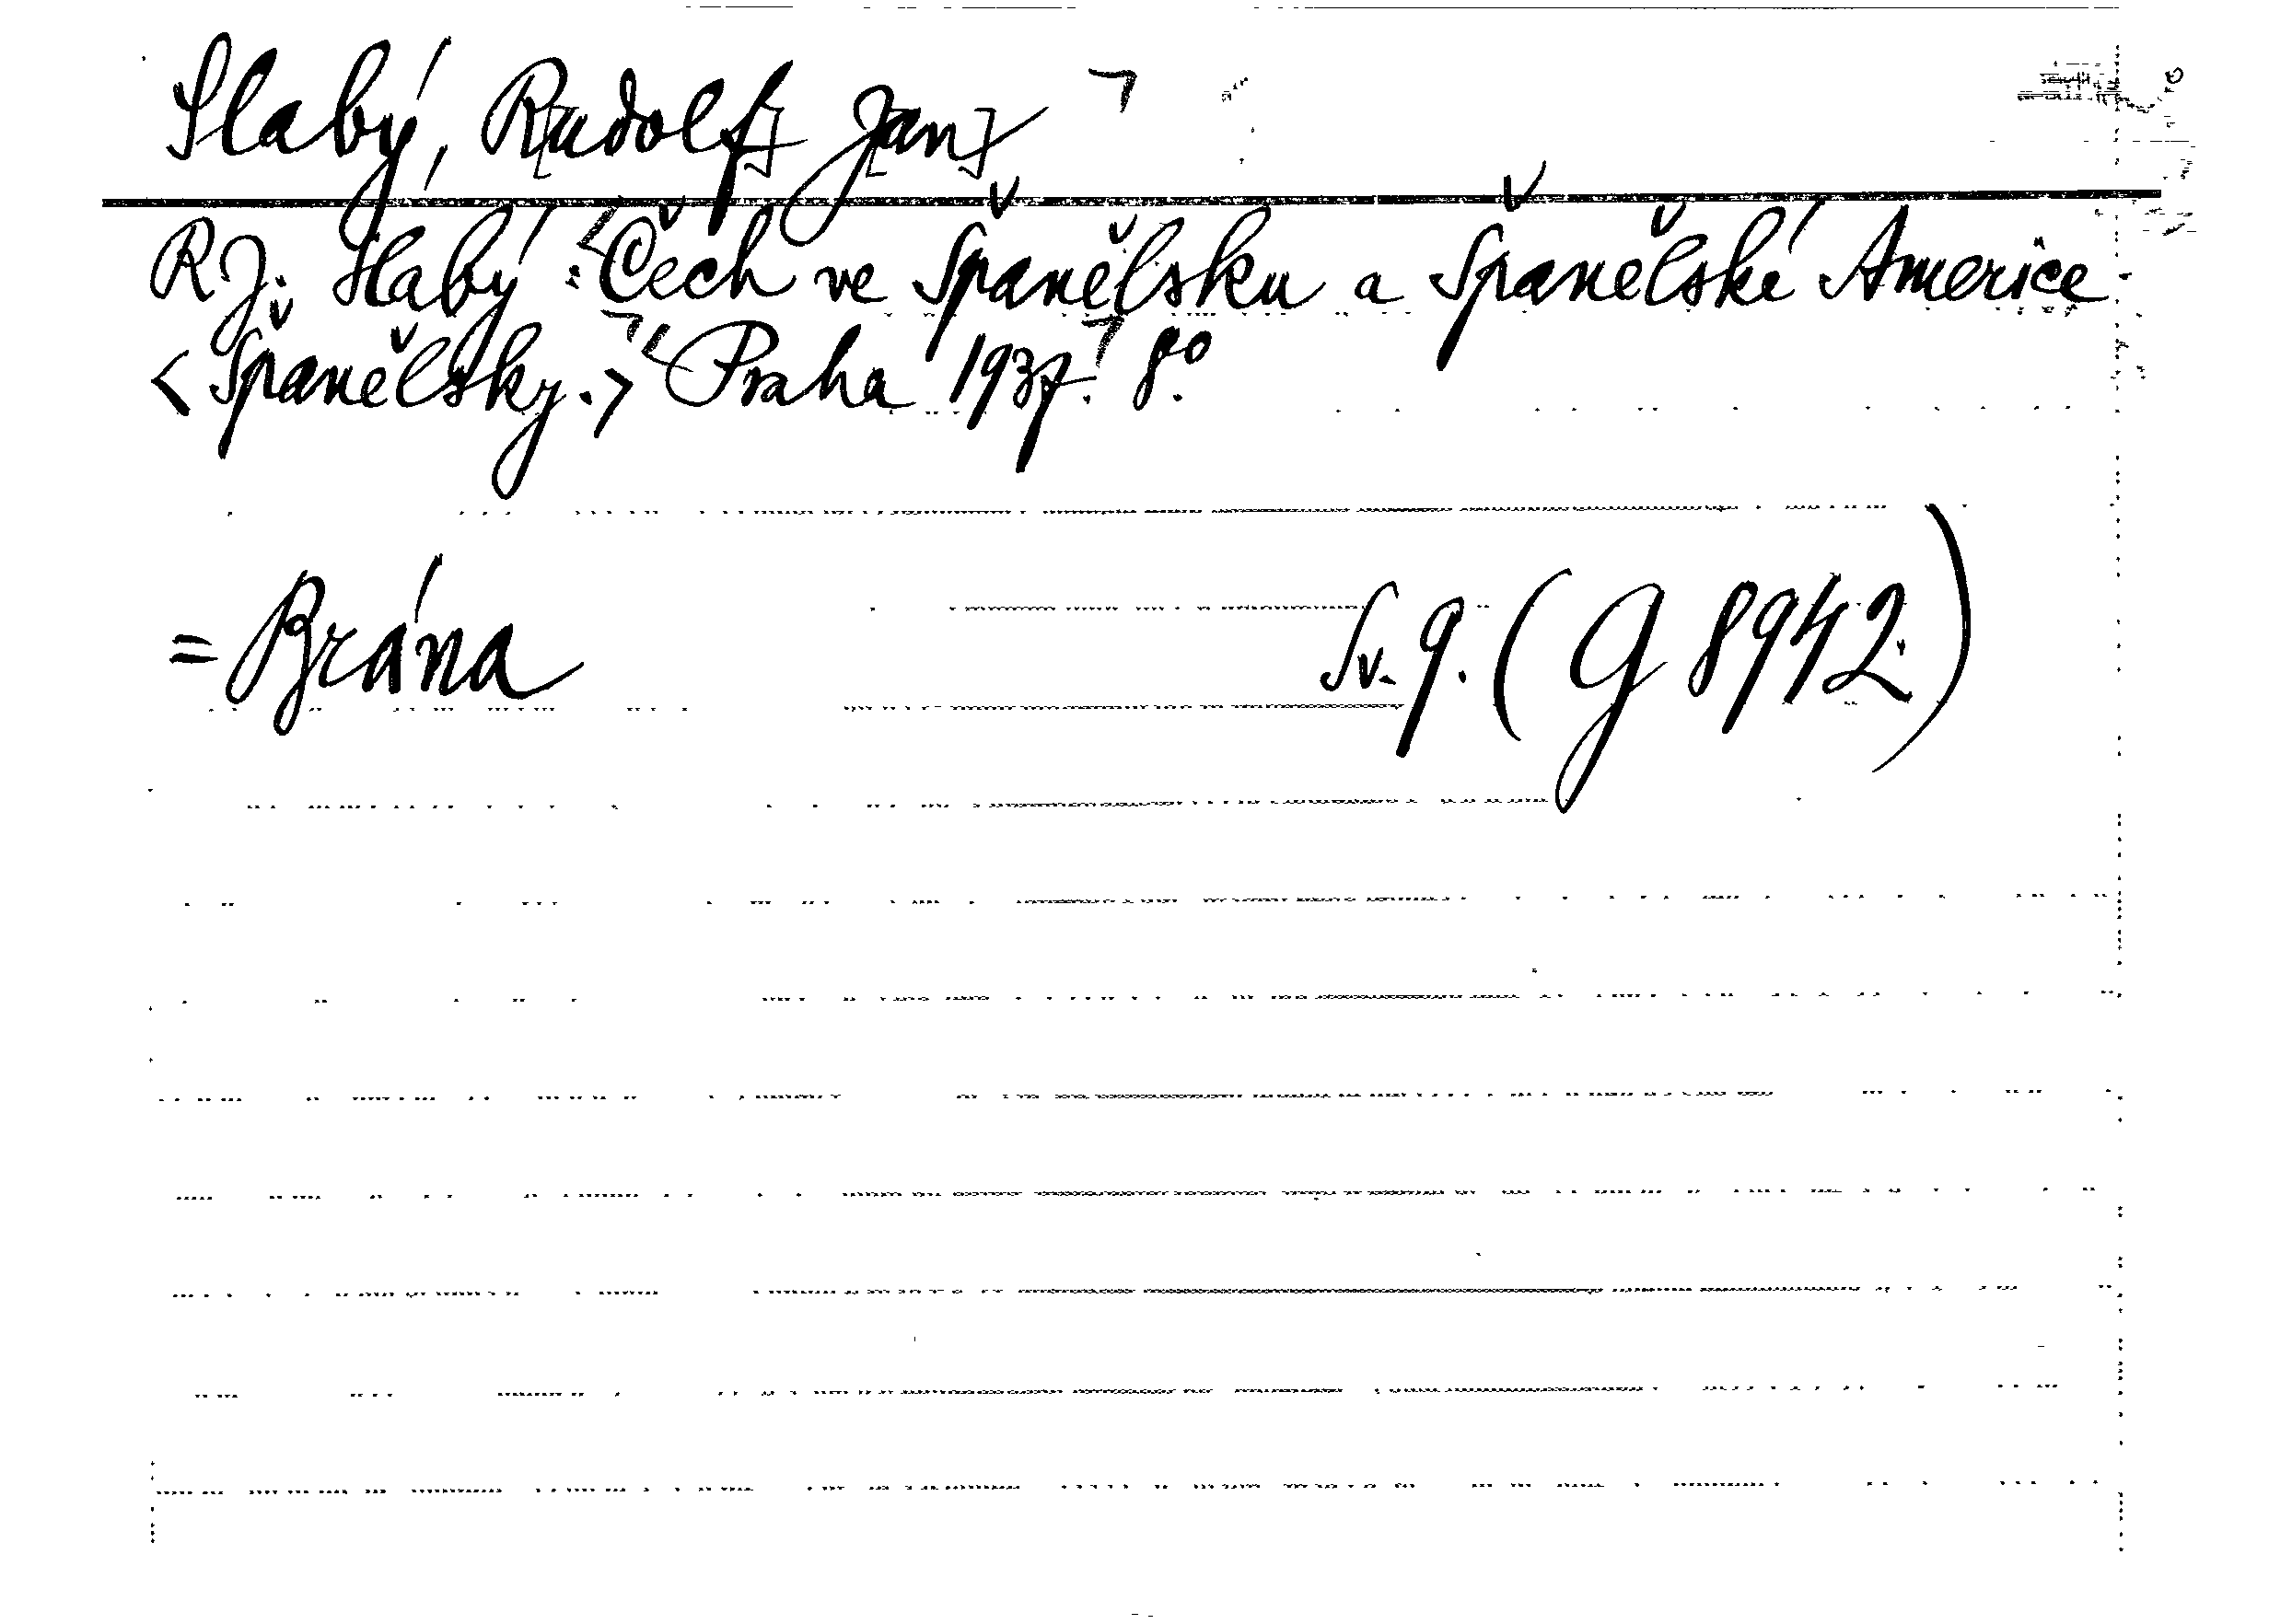 Slabý, R[udolf] J[an]
R. J. Slabý: Čech ve Španělsku a Španělské Americe
<Španělsky.> Praha 1937. 8°.
= Brána Sv. 9. (G 8942)